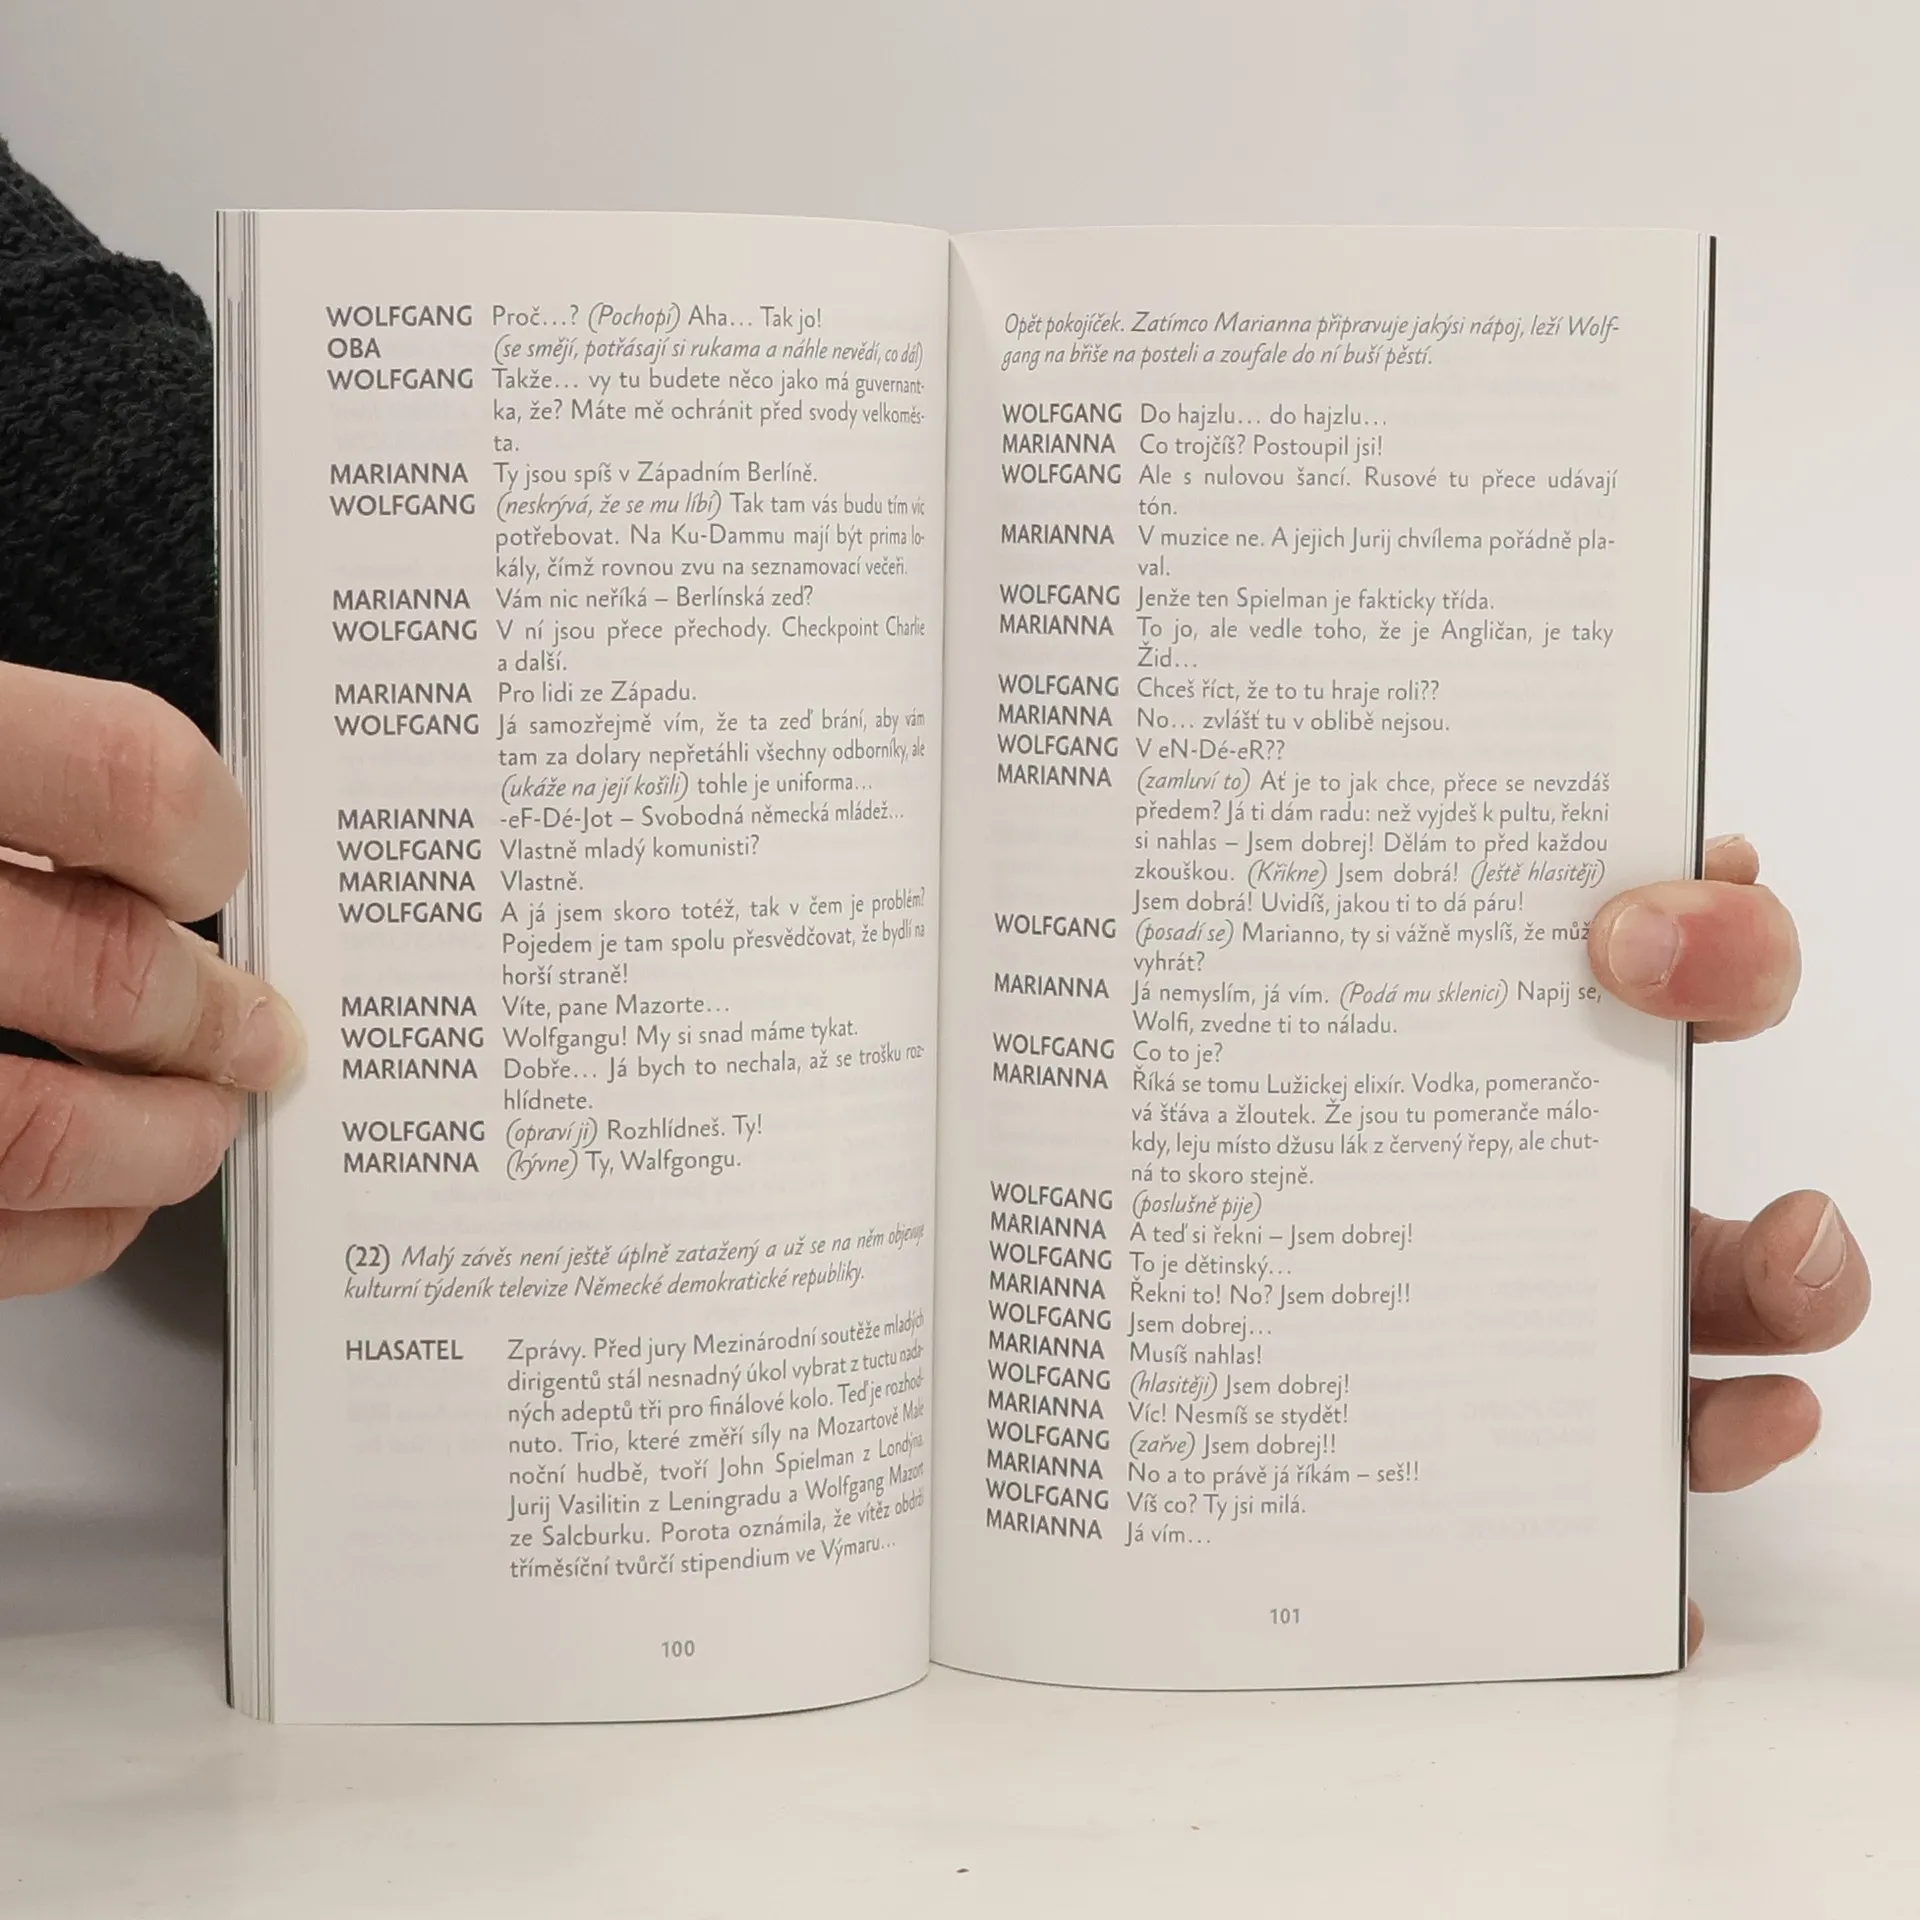 WOLFGANG Proč…? (Pochopí) Aha… Tak jo!
OBA (se smějí, potřásají si rukama a náhle nevědí, co dál)
WOLFGANG Takže… vy tu budete něco jako má guvernant-
ka, že? Máte mě ochránit před svody velkoměs-
ta.
MARIANNA Ty jsou spíš v Západním Berlíně.
WOLFGANG (neskrývá, že se mu líbí) Tak tam vás budu tím víc
potřebovat. Na Ku-Dammu mají být prima lo-
kály, čímž rovnou zvu na seznamovací večeři.
MARIANNA Vám nic neříká – Berlínská zeď?
WOLFGANG V ní jsou přece přechody. Checkpoint Charlie
a další.
MARIANNA Pro lidi ze Západu.
WOLFGANG Já samozřejmě vím, že ta zeď brání, aby vám
tam za dolary nepřetáhli všechny odborníky, ale
(ukáže na její košili) tohle je uniforma…
MARIANNA -eF-Dé-Jot – Svobodná německá mládež…
WOLFGANG Vlastně mladý komunisti?
MARIANNA Vlastně.
WOLFGANG A já jsem skoro totéž, tak v čem je problém?
Pojedem je tam spolu přesvědčovat, že bydlí na
horší straně!
MARIANNA Víte, pane Mazorte…
WOLFGANG Wolfgangu! My si snad máme tykat.
MARIANNA Dobře… Já bych to nechala, až se trošku roz-
hlídnete.
WOLFGANG (opraví ji) Rozhlídneš. Ty!
MARIANNA (kývne) Ty, Walfgongu.
(22) Malý závěs není ještě úplně zatažený a už se na něm objevuje
kulturní týdeník televize Německé demokratické republiky.
HLASATEL Zprávy. Před jury Mezinárodní soutěže mladých
dirigentů stál nesnadný úkol vybrat z tuctu nada-
ných adeptů tři pro finálové kolo. Teď je rozhod-
nuto. Trio, které změří síly na Mozartově Malé
noční hudbě, tvoří John Spielman z Londýna,
Jurij Vasilitin z Leningradu a Wolfgang Mazort
ze Salcburku. Porota oznámila, že vítěz obdrží
tříměsíční tvůrčí stipendium ve Výmaru…
100
Opět pokojíček. Zatímco Marianna připravuje jakýsi nápoj, leží Wolf-
gang na břiše na posteli a zoufale do ní buší pěstí.
WOLFGANG Do hajzlu… do hajzlu…
MARIANNA Co trojčíš? Postoupil jsi!
WOLFGANG Ale s nulovou šancí. Rusové tu přece udávají
tón.
MARIANNA V muzice ne. A jejich Jurij chvílema pořádně pla-
val.
WOLFGANG Jenže ten Spielman je fakticky třída.
MARIANNA To jo, ale vedle toho, že je Angličan, je taky
Žid…
WOLFGANG Chceš říct, že to tu hraje roli??
MARIANNA No… zvlášť tu v oblibě nejsou.
WOLFGANG V eN-Dé-eR??
MARIANNA (zamluví to) Ať je to jak chce, přece se nevzdáš
předem? Já ti dám radu: než vyjdeš k pultu, řekni
si nahlas – Jsem dobrej! Dělám to před každou
zkouškou. (Křikne) Jsem dobrá! (Ještě hlasitěji)
Jsem dobrá! Uvidíš, jakou ti to dá páru!
WOLFGANG (posadí se) Marianno, ty si vážně myslíš, že
vyhrát?
MARIANNA Já nemyslím, já vím. (Podá mu sklenici) Napij se,
Wolfi, zvedne ti to náladu.
WOLFGANG Co to je?
MARIANNA Říká se tomu Lužickej elixír. Vodka, pomerančo-
vá šťáva a žloutek. Že jsou tu pomeranče málo-
kdy, leju místo džusu lák z červený řepy, ale chut-
ná to skoro stejně.
WOLFGANG (poslušně pije)
MARIANNA A teď si řekni – Jsem dobrej!
WOLFGANG To je dětinský…
MARIANNA Řekni to! No? Jsem dobrej!!
WOLFGANG Jsem dobrej…
MARIANNA Musíš nahlas!
WOLFGANG (hlasitěji) Jsem dobrej!
MARIANNA Víc! Nesmíš se stydět!
WOLFGANG (zařve) Jsem dobrej!!
MARIANNA No a to právě já říkám – seš!!
WOLFGANG Víš co? Ty jsi milá.
MARIANNA Já vím…
101